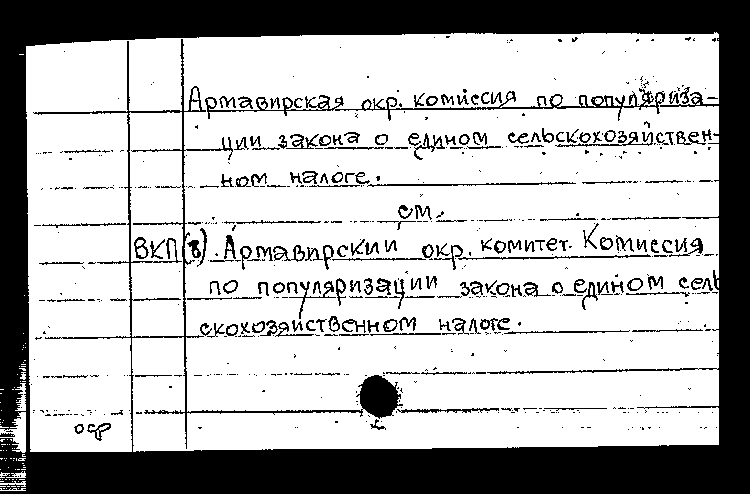 Армавирская окр. комиссия по популяриза-
ции закона о едином сельскохозяйствен-
ном налоге.
см.
ВКП(б). Армавирский окр. комитет. Комиссия
по популяризации закона о едином сель
скохозяйственном налоге.
оср